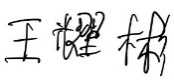 王耀彬